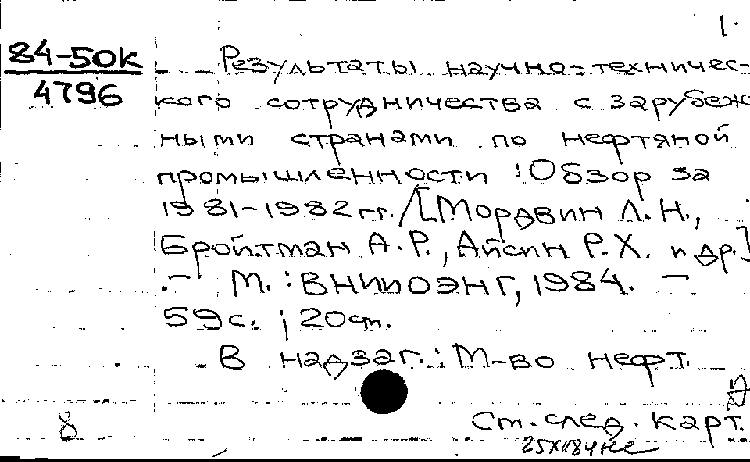 1.
84-50к
4796
Результаты научно-техничес-
кого сотрудничества с зарубеж
ными странами по нефтяной
промышленности : Обзор за
1981-1982 гг. / [Мордвин Л.Н.,
Бройтман А.Р., Айсин Р.Х. и др.]
.- М. : ВНИИОЭНГ, 1984. -
59 с. ; 20 см.
В надзаг.: М-во нефт.
8
См. след. карт.